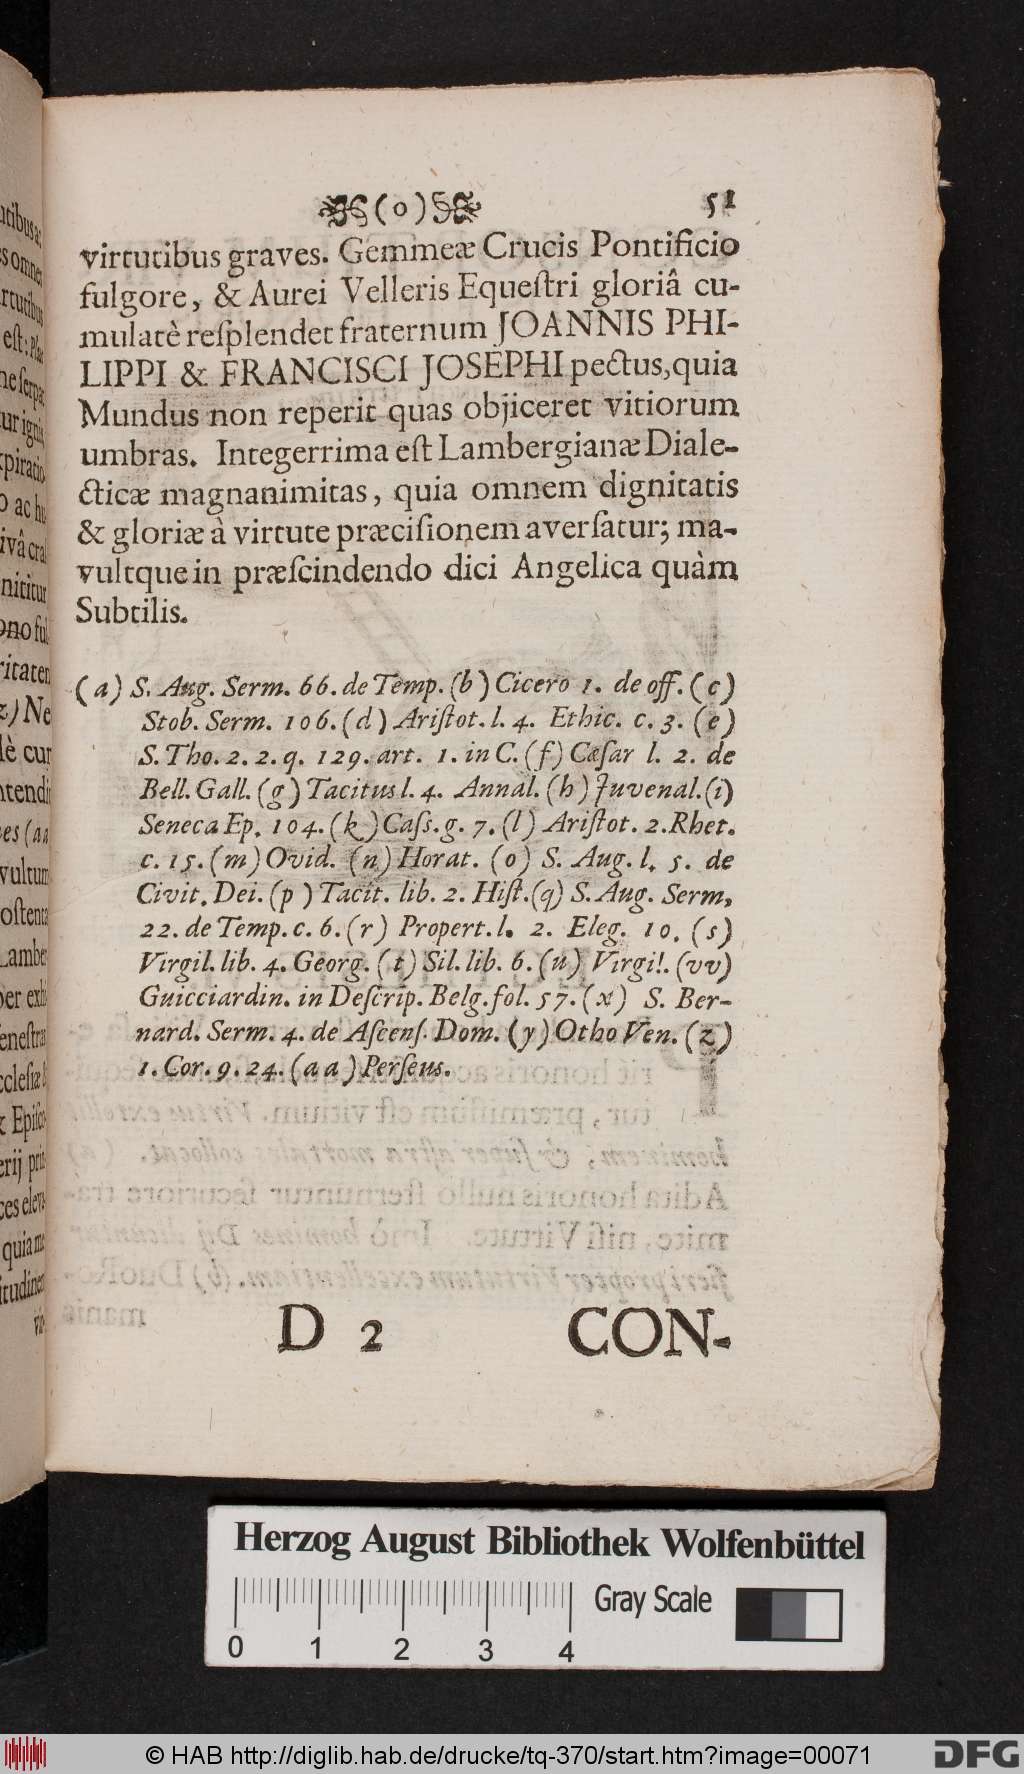 (o) 51
virtutibus graves. Gemmeæ Crucis Pontificio
fulgore, & Aurei Velleris Equeſtri gloriâ cu-
mulatè reſplendet fraternum JOANNIS PHI-
LIPPI & FRANCISCI JOSEPHI pectus, quia
Mundus non reperit quas objiceret vitiorum
umbras. Integerrima eſt Lambergianæ Diale-
cticæ magnanimitas, quia omnem dignitatis
& gloriæ à virtute præciſionem averſatur; ma-
vultque in præſcindendo dici Angelica quàm
Subtilis.
(a) S. Aug. Serm. 66. de Temp. (b) Cicero 1. de off. (c)
Stob. Serm. 106. (d) Ariſtot. l. 4. Ethic. c. 3. (e)
S. Tho. 2. 2. q. 129. art. 1. in C. (f) Cæſar l. 2. de
Bell. Gall. (g) Tacitus l. 4. Annal. (h) Juvenal. (i)
Seneca Ep. 104. (k) Caſs. g. 7. (l) Ariſtot. 2. Rhet.
c. 15. (m) Ovid. (n) Horat. (o) S. Aug. l. 5. de
Civit. Dei. (p) Tacit. lib. 2. Hiſt. (q) S. Aug. Serm,
22. de Temp. c. 6. (r) Propert. l. 2. Eleg. 10. (s)
Virgil. lib. 4. Georg. (t) Sil. lib. 6. (u) Virgil. (vv)
Guicciardin. in Deſcrip. Belg. fol. 57. (x) S. Ber-
nard. Serm. 4. de Aſcenſ. Dom. (y) Otho Ven. (z)
1. Cor. 9. 24. (aa) Perſeus.
D 2 CON-
Herzog August Bibliothek Wolfenbüttel
Gray Scale
0 1 2 3 4
© HAB http://diglib.hab.de/drucke/tq-370/start.htm?image=00071
DFG